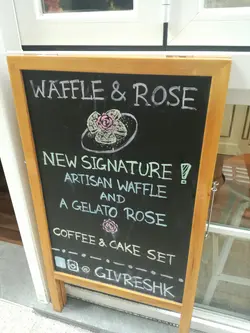 WAFFLE & ROSE
NEW SIGNATURE !
ARTISAN WAFFLE
AND
A GELATO ROSE
COFFEE & CAKE SET
@ GIVRESHK